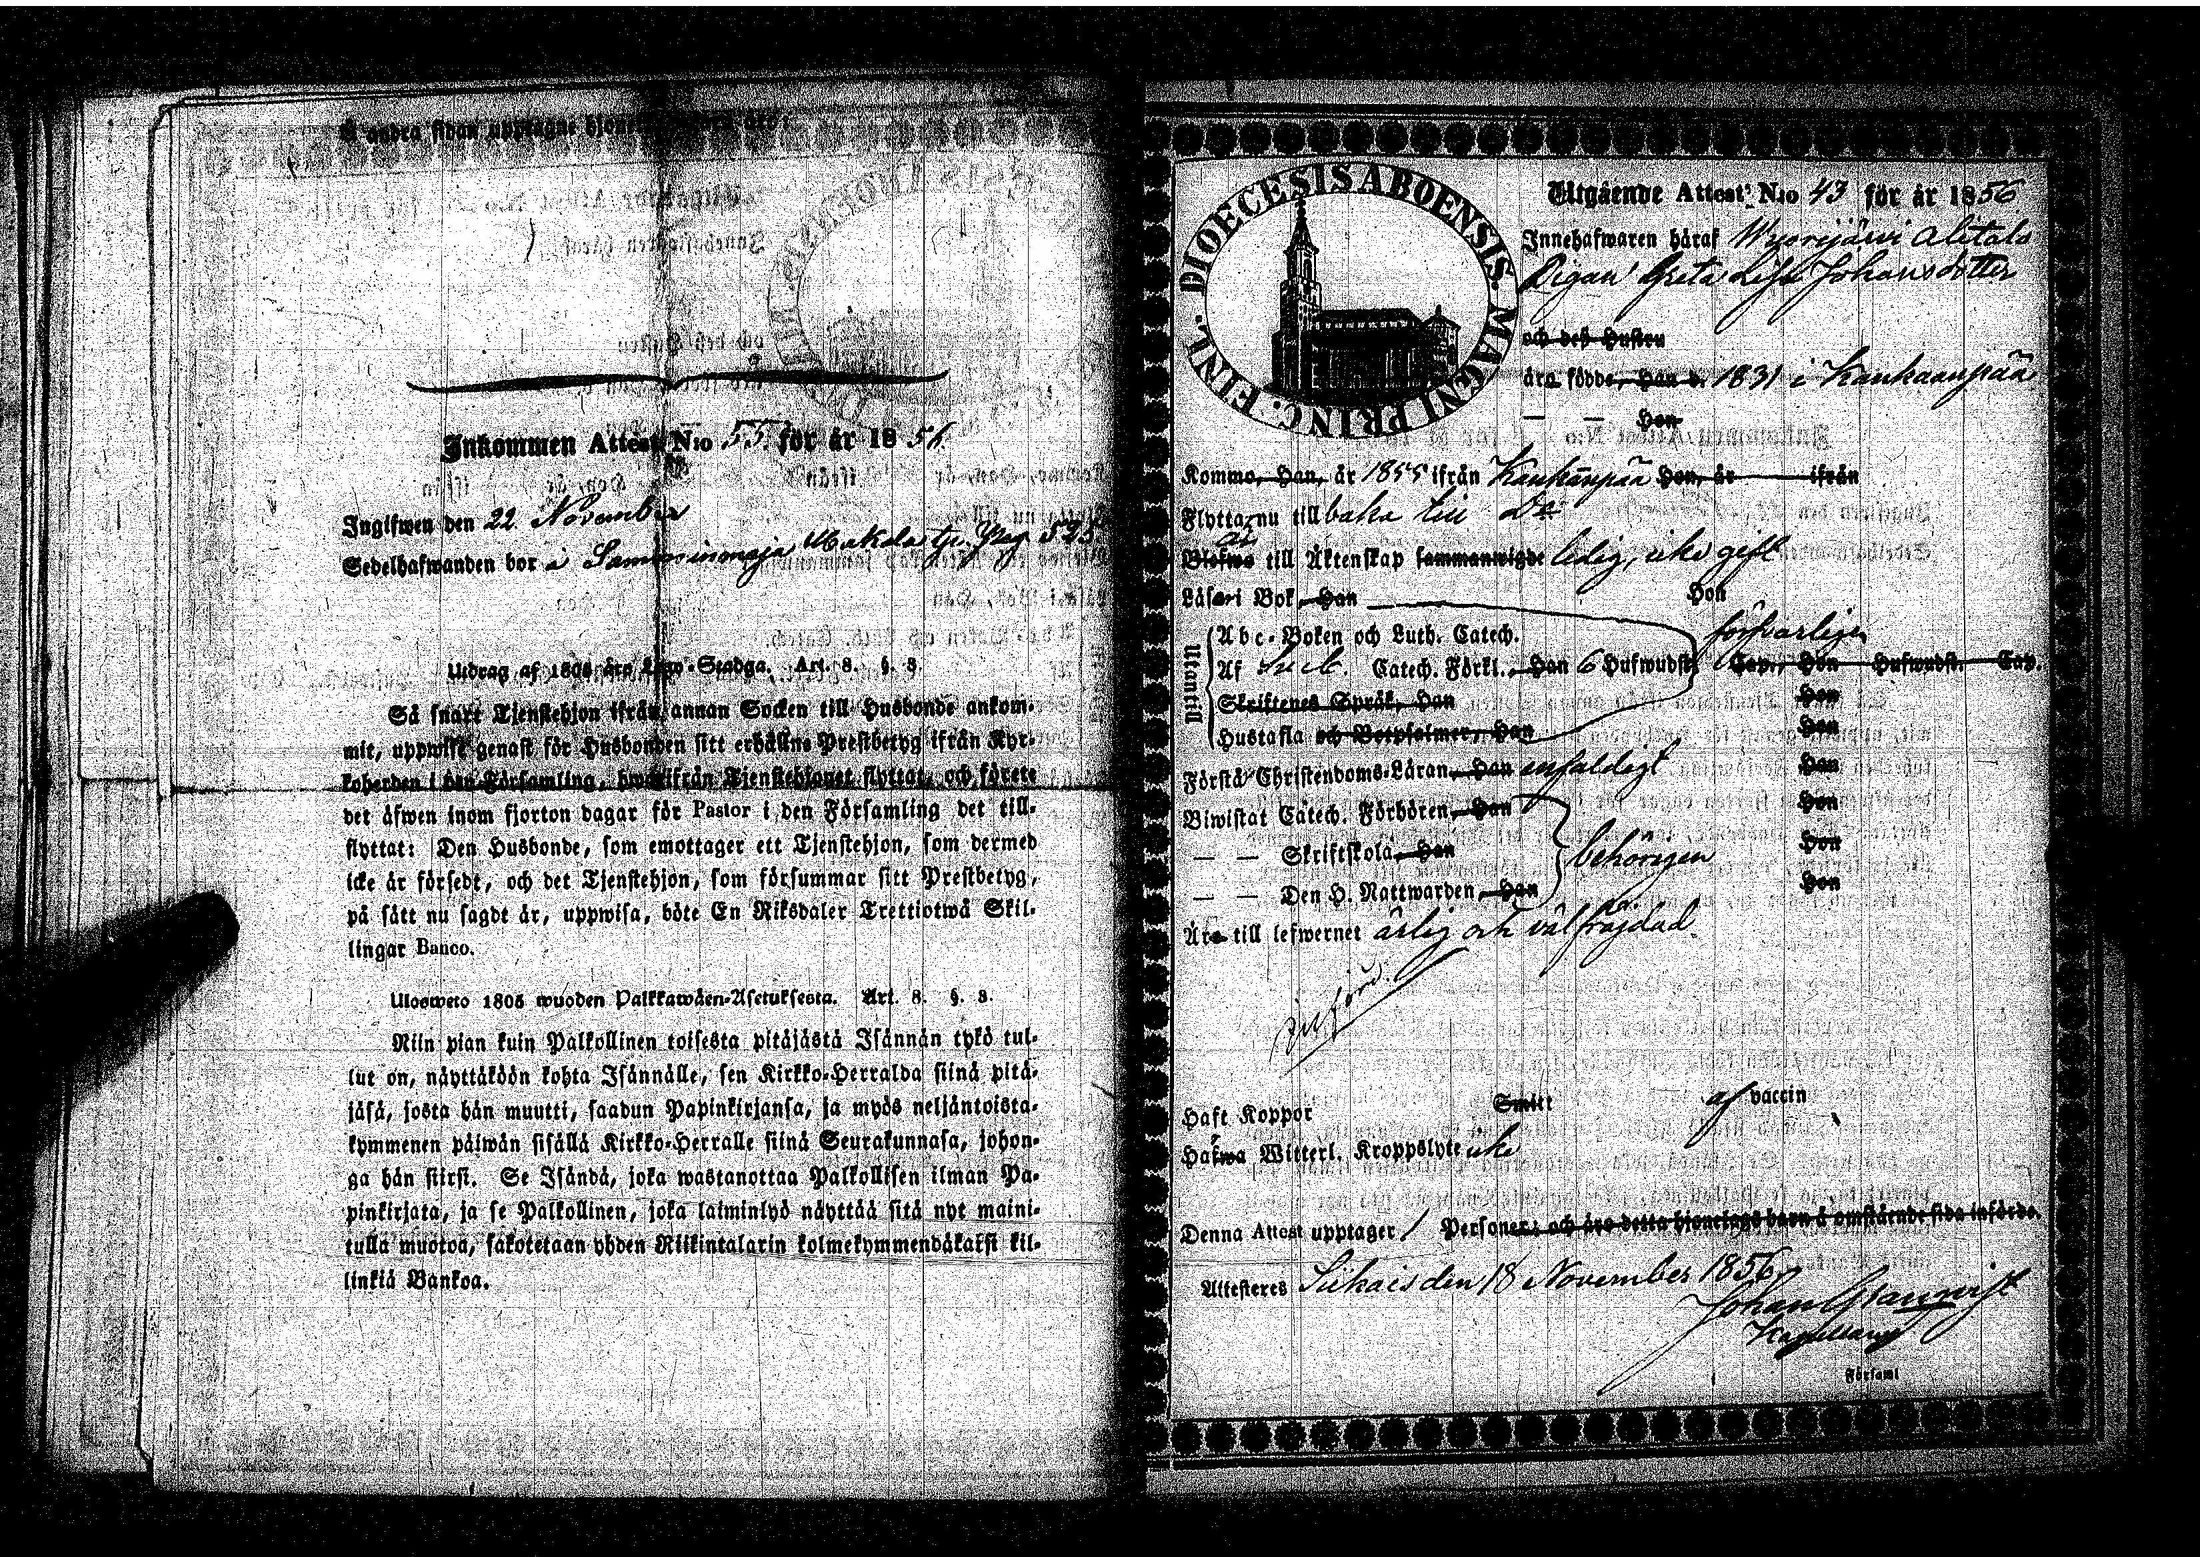 Å andra sidan upptagne hjone
Inkommen Attest N:o 55 för år 1856.
Ingifwen den 22 November
Sedelhafwanden bor å Samminmaja Pag 525
Utdrag af 1805 års Lego-Stadga. Art. 8. §. 3.
Så snart Tjenstehjon ifrån annan Socken till Husbonde ankom-
mit, uppwise genast för Husbonden sitt erhållne Prestbetyg ifrån Kyr-
koherden i den Församling, hwarifrån Tjenstehjonet flyttat, och förete
det äfwen inom fjorton dagar för Pastor i den Församling det till-
flyttat: Den Husbonde, som emottager ett Tjenstehjon, som dermed
icke är försedt, och det Tjenstehjon, som försummar sitt Prestbetyg,
på sätt nu sagdt är, uppwisa, böte En Riksdaler Trettiotwå Skil-
lingar Banco.
Ulosweto 1805 wuoden Palkkawäen-Asetuksesta. Art. 8. §. 3.
Niin pian kuin Palkollinen toisesta pitäjästä Isännän tykö tul-
lut on, näyttäköön kohta Isännälle, sen Kirkko-Herralda siinä pitä-
jäsä, josta hän muutti, saadun Papinkirjansa, ja myös neljäntoista-
kymmenen päiwän sisällä Kirkko-Herralle siinä Seurakunnasa, johon-
ga hän siirsi. Se Isändä, joka wastanottaa Palkollisen ilman Pa-
pinkirjata, ja se Palkollinen, joka laiminlyö näyttää sitä nyt maini-
tulla muotoa, sakotetaan yhden Riikintalarin kolmekymmendäkaksi kil-
linkiä Bankoa.
DIOECESIS ABOENSIS. MAGNI PRINC. FINL.
Utgående Attest N:o 43 för år 1856
Innehafwaren häraf Alitalo
Pigan Greta Lisa Johansdotter
och deß Hustru
äro födde, Han d. 1831 i Kankaanpää
— — Hon
Kommo, Han, år 1855 ifrån Kankanpää Hon, år ifrån
Flyttar nu tillbaka till Do
är
Blefwo till Äktenskap sammanwigde ledig, icke gift
Läser i Bok, Han Hon
försvarligen
Utantill
Abc-Boken och Luth. Catech.
Af Sveb. Catech. Förkl., Han 6 Hufwudst. Cap., Hon Hufwudst. Cap.
Skriftenes Språk, Han Hon
Hustafla och Botpsalmer, Han Hon
Förstå Christendoms-Läran, Han enfaldigt Hon
Biwistat Catech. Förhören, Han Hon
— — Skriftskola, Han behörigen Hon
— — Den H. Nattwarden, Han Hon
Äro till lefwernet ärlig och välfrejdad.
Haft Koppor Smitt af vaccin
Hafwa Witterl. Kroppslyte icke
Denna Attest upptager 1 Personer: och äro detta hjonelags barn å omstående sida införde.
Attesteres Siikais den 18 November 1856.
Johan Granqvist
Kapellan
Församl